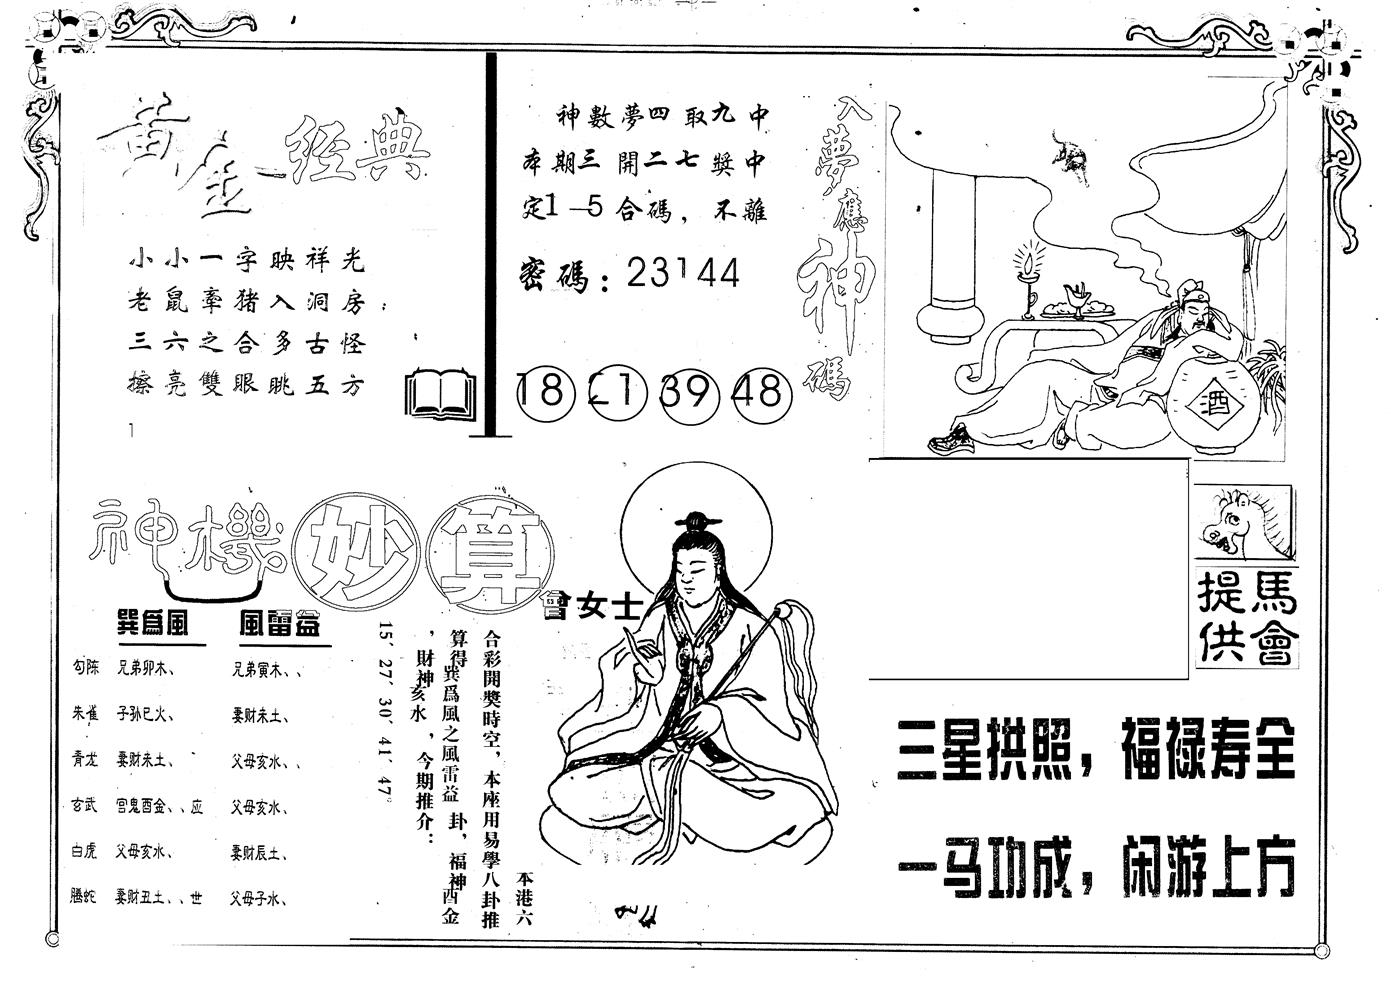 黃金一經典
小小一字映祥光
老鼠牽猪入洞房；
三六之合多古怪
擦亮雙眼眺五方
神數夢四取九中
本期三開二七獎中
定1—5合碼，不離
密碼：23144
18 21 39 48
入夢應神碼
酒
神機妙算
會女士
巽爲風 風雷益
勾陈 兄弟卯木、 兄弟寅木、、
朱雀 子孙巳火、 妻财未土、
青龙 妻财未土、、 父母亥水、、
玄武 官鬼酉金、、应 父母亥水、
白虎 父母亥水、 妻财辰土、
腾蛇 妻财丑土、、世 父母子水、
本港六
合彩開獎時空，本座用易學八卦推
算得巽爲風之風雷益卦，福神酉金
，財神亥水，今期推介：
15′ 27′ 30′ 41′ 47°
馬會
提供
三星拱照，福禄寿全
一马功成，闲游上方